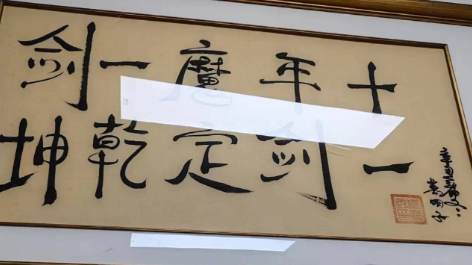 十年磨一剑
一剑定乾坤